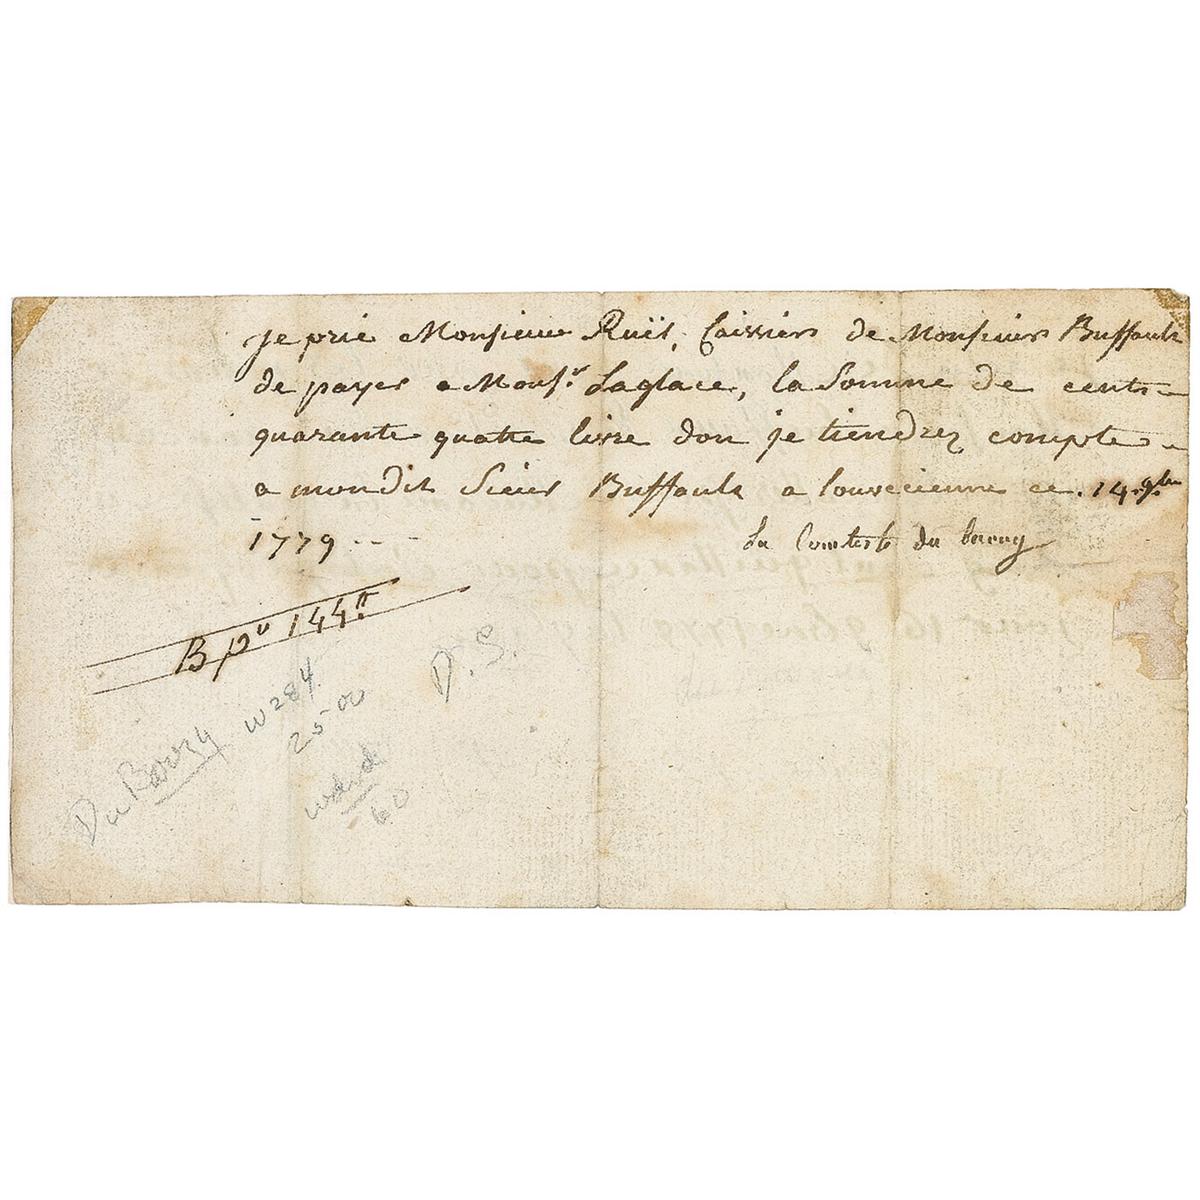 je prie Monsieur Ruët, Caissier de Monsieur Buffault
de payer a Monsr. Laglace, la Somme de cent-
quarante quatte livre don je tiendrez compte
a mondit Sieur Buffault a louvecienne ce. 14. 9.bre
1779
La Comtesse du barry
B pr 144tt
D. S.
Du Barry
W284
25 00
60